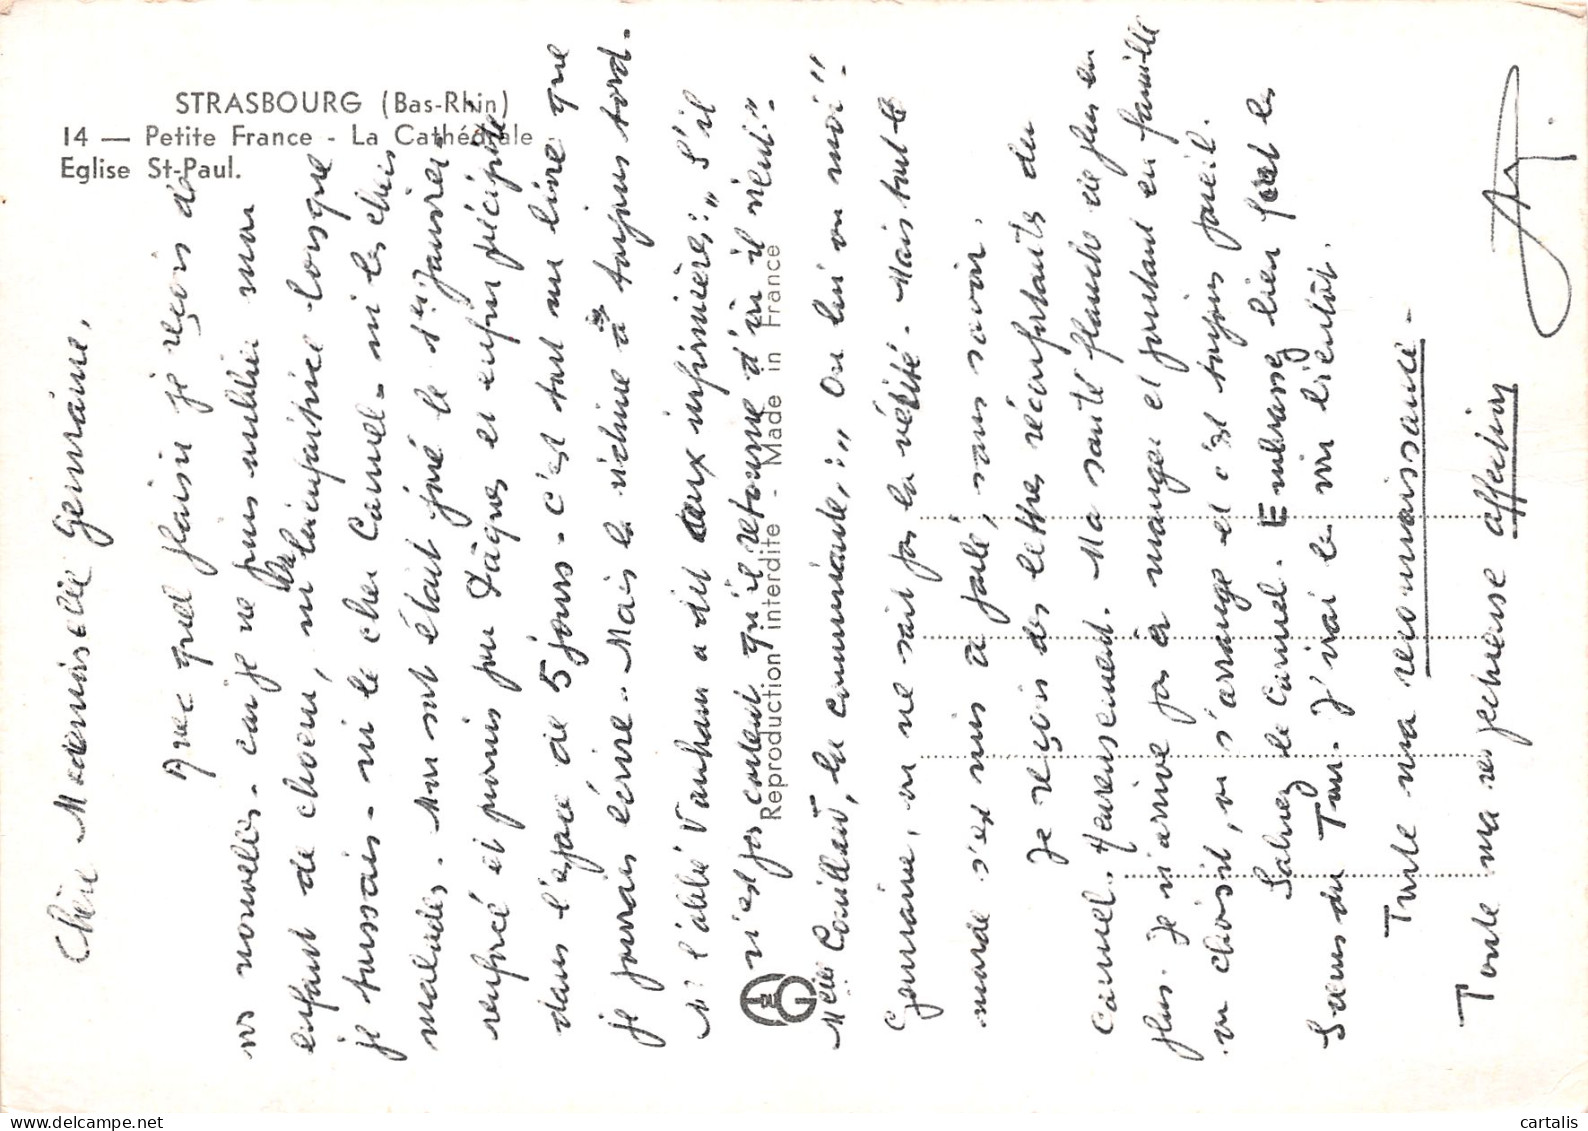 STRASBOURG (Bas-Rhin)
14 — Petite France - La Cathédrale
Eglise St-Paul.
Reproduction interdite - Made in France
Chère Mademoiselle Germaine,
Avec quel plaisir je reçois de
vos nouvelles. car je ne puis oublier mon
enfant de choeur, ni la bienfaitrice lorsque
je toussais - ni le cher Carmel - ni les chers
malades. Mon sort était joné le 1er Janvier,
renforcé et promis pour Pâques et enfin précipité
dans l'espace de 5 jours - c'est tout un livre que
je pourrais écrire - Mais la victime a toujours tord.
Mr l'abbé Vauban a dit aux infirmières: "S'il
n'est pas content qu'il retourne d'où il vient".
Melle Couillaud, la communiante,: "Ou lui ou moi"!
Germaine, on ne sait pas la vérité. Mais tout le
monde s'est mis à parlé, sans savoir.
Je reçois des lettres réconfortants du
Carmel. Heureusement. Ma santé flanche de plus en
plus. Je n'arrive pas à manger et pourtant en famille
on choisit, on s'arrange et c'est toujours pareil.
Saluez le Carmel. Embrassez bien fort les
Soeurs du Tour. J'irai les voir bientôt.
Toute ma reconnaissance -
Toute ma respectueuse affection